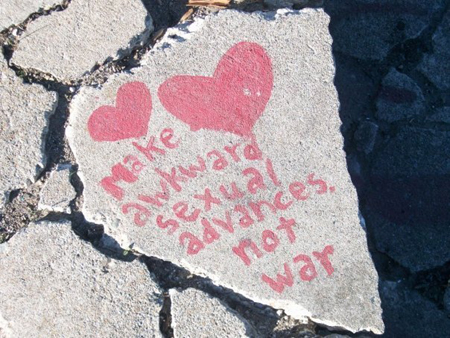 make
awkward
sexual
advances,
not
war